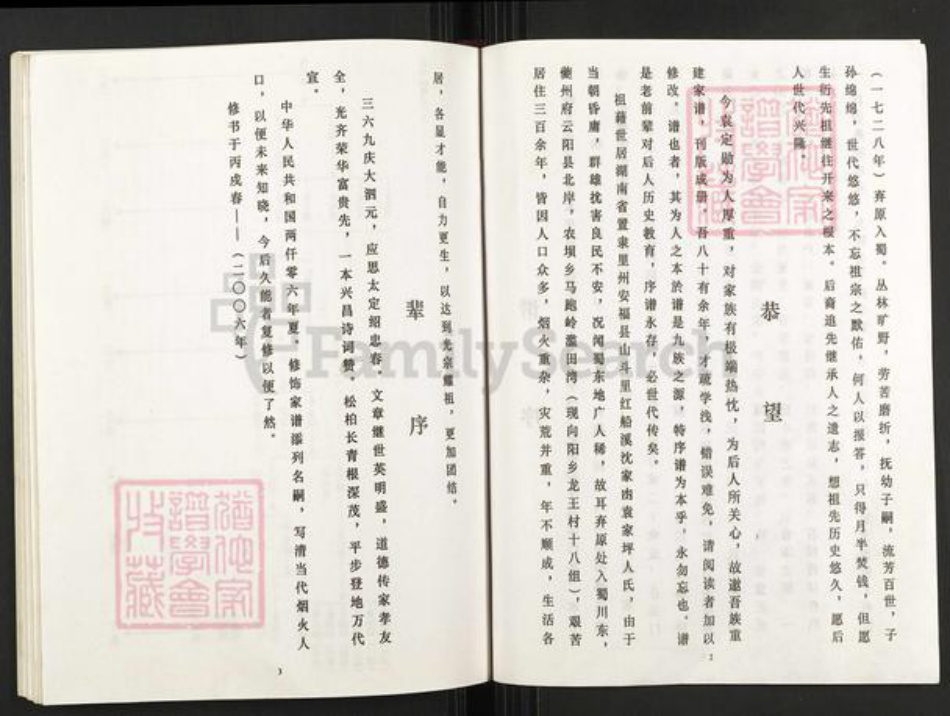 (一七二八年)弃原入蜀。丛林旷野,劳苦磨折,抚幼子嗣,流芳百世,子
孙绵绵,世代悠悠,不忘祖宗之默佑,何人以报答,只得月半焚钱,但愿
生衍先祖继往开来之根本。后裔追先继承人之遗志,想祖先历史悠久,愿后
人世代兴隆。
恭望
今袁定勋为人厚重,对家族有极端热忱,为后人所关心,故邀吾族重
建家谱,刊版成册,吾八十有余年,才疏学浅,错误难免,请阅读者加以
修改。谱也者,其为人之本於谱是九族之源,特序谱为本乎,永勿忘也。谱
是老前辈对后人历史教育,序谱永存,必世代传矣。
祖籍世居湖南省置隶里州安福县山斗里红船溪沈家凼袁家坪人氏,由于
当朝昏庸,群雄扰害良民不安,况闻蜀东地广人稀,故耳弃原处入蜀川东,
夔州府云阳县北岸,农坝乡马跑岭滥田湾(现向阳乡龙王村十八组),艰苦
居住三百余年,皆因人口众多,烟火重杂,灾荒并重,年不顺成,生活各
2
居,各显才能,自力更生,以达到光宗耀祖,更加团结。
辈序
三六九庆大泗元,应思太定绍忠春,文章继世英明盛,道德传家孝友
全,光齐荣华富贵先,一本兴昌诗词赞,松柏长青根深茂,平步登地万代
宣。
中华人民共和国两仟零六年夏,修饰家谱添列名嗣,写清当代烟火人
口,以便未来知晓,今后久能者复修以便了然。
修书于丙戌春——(二〇〇六年)
3
FamilySearch